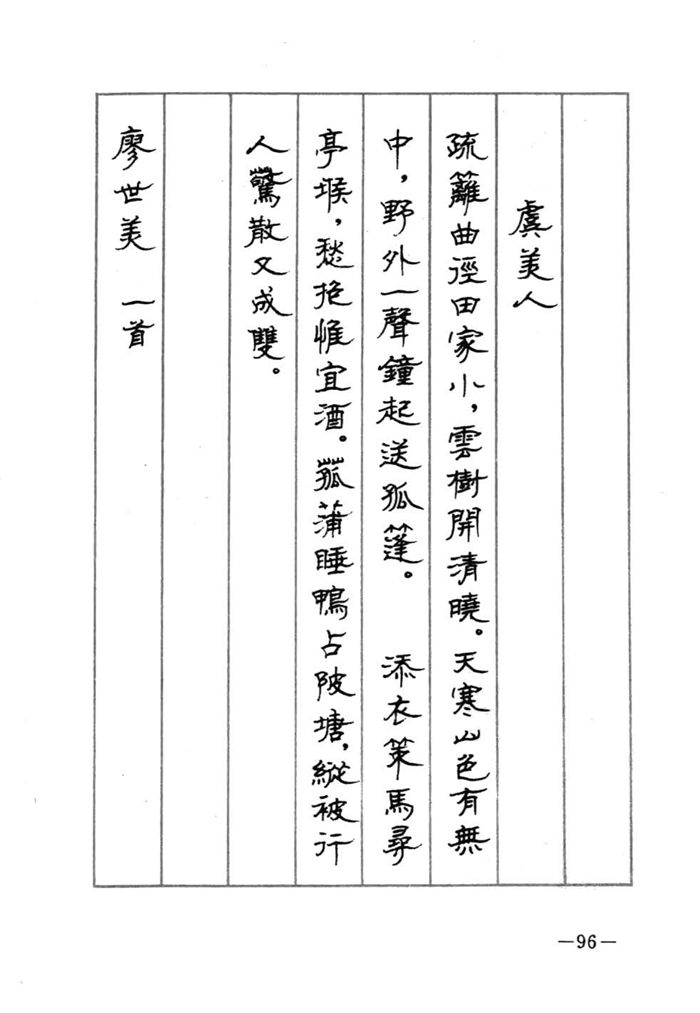 虞美人
疏籬曲徑田家小，雲樹開清曉。天寒山色有無
中，野外一聲鐘起送孤篷。 添衣策馬尋
亭堠，愁抱惟宜酒。菰蒲睡鴨占陂塘，縱被行
人驚散又成雙。
廖世美 一首
—96—